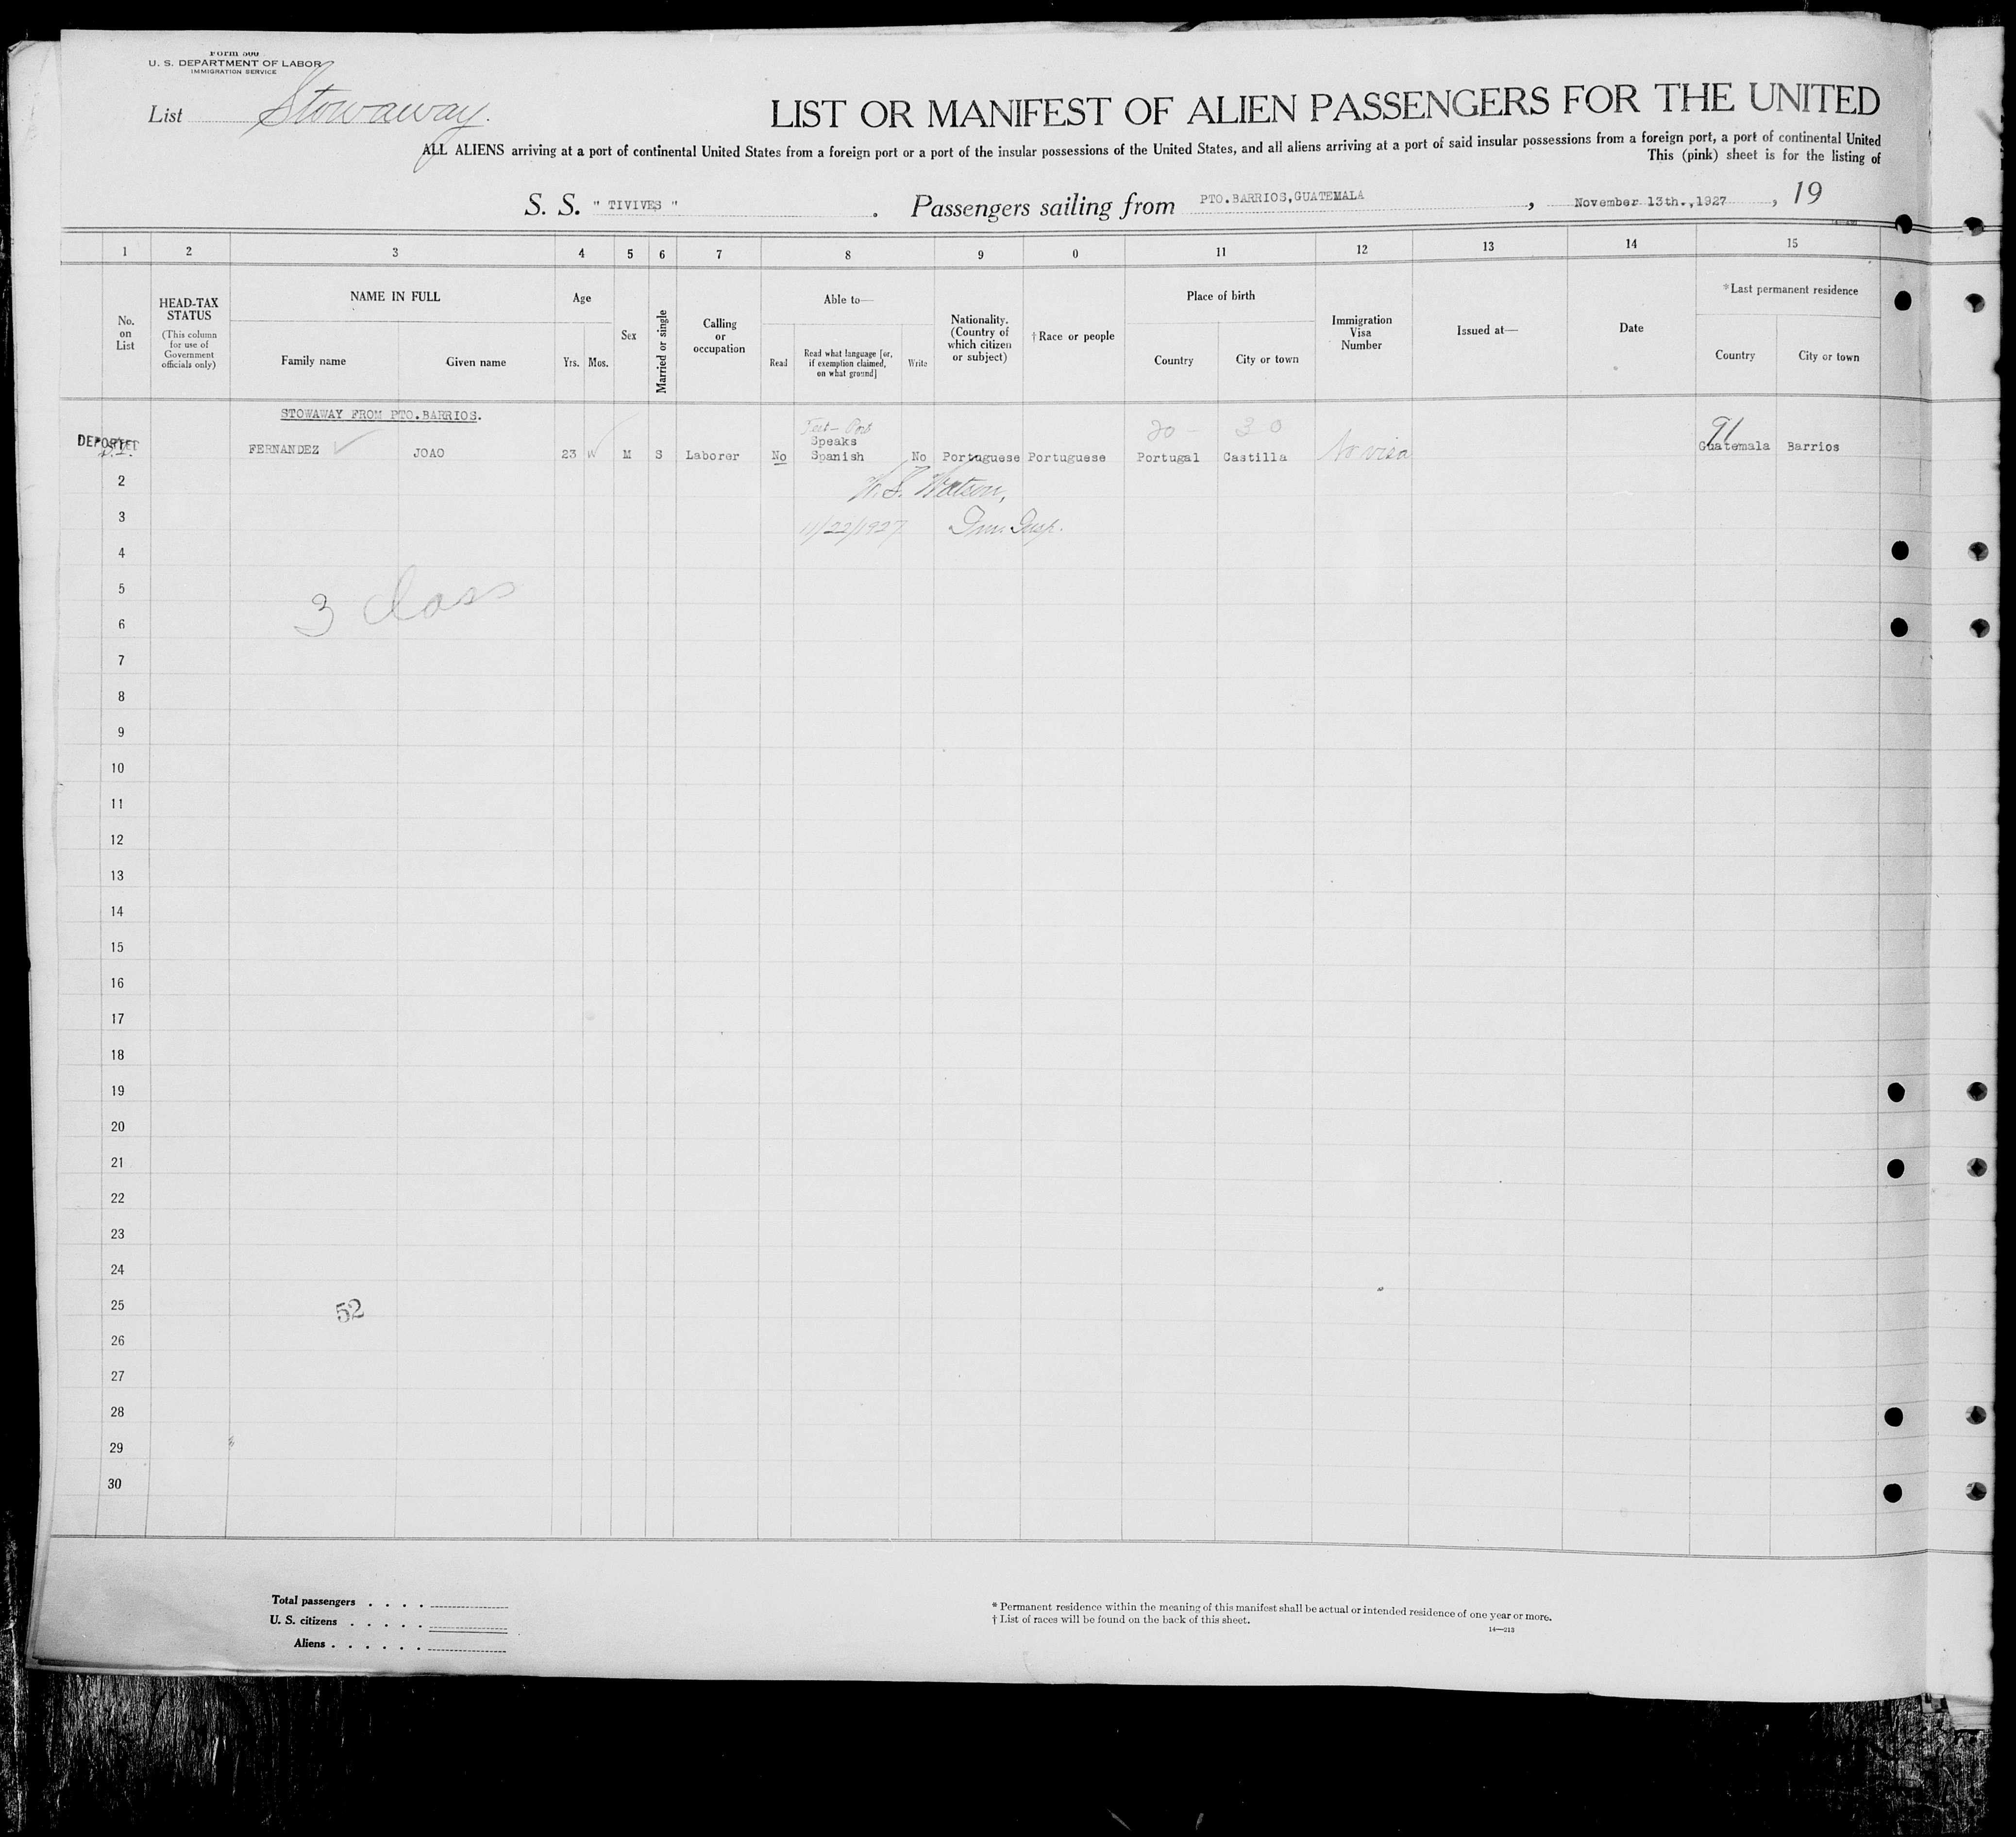 Form 500
U. S. DEPARTMENT OF LABOR
IMMIGRATION SERVICE
List Stowaway.
LIST OR MANIFEST OF ALIEN PASSENGERS FOR THE UNITED
ALL ALIENS arriving at a port of continental United States from a foreign port or a port of the insular possessions of the United States, and all aliens arriving at a port of said insular possessions from a foreign port, a port of continental United
This (pink) sheet is for the listing of
S. S. " TIVIVES " . Passengers sailing from PTO.BARRIOS,GUATEMALA , November 13th.,1927 , 19
1 2 3 4 5 6 7 8 9 0 11 12 13 14 15
No. on List
HEAD-TAX STATUS
(This column for use of Government officials only)
NAME IN FULL
Family name Given name
Age
Yrs. Mos.
Sex
Married or single
Calling or occupation
Able to—
Read
Read what language [or, if exemption claimed, on what ground]
Write
Nationality. (Country of which citizen or subject)
†Race or people
Place of birth
Country City or town
Immigration Visa Number
Issued at—
Date
*Last permanent residence
Country City or town
STOWAWAY FROM PTO.BARRIOS.
20 - 30 91
DEPORTED FERNANDEZ JOAO 23 M S Laborer No Speaks Spanish No Portuguese Portuguese Portugal Castilla No visa Guatemala Barrios
2 W. S. Watson,
3 11/22/1927 Imm. Insp.
4
5
3 class
6
7
8
9
10
11
12
13
14
15
16
17
18
19
20
21
22
23
24
25
52
26
27
28
29
30
Total passengers . . . .
U. S. citizens . . . . .
Aliens . . . . . .
* Permanent residence within the meaning of this manifest shall be actual or intended residence of one year or more.
† List of races will be found on the back of this sheet.
14—213